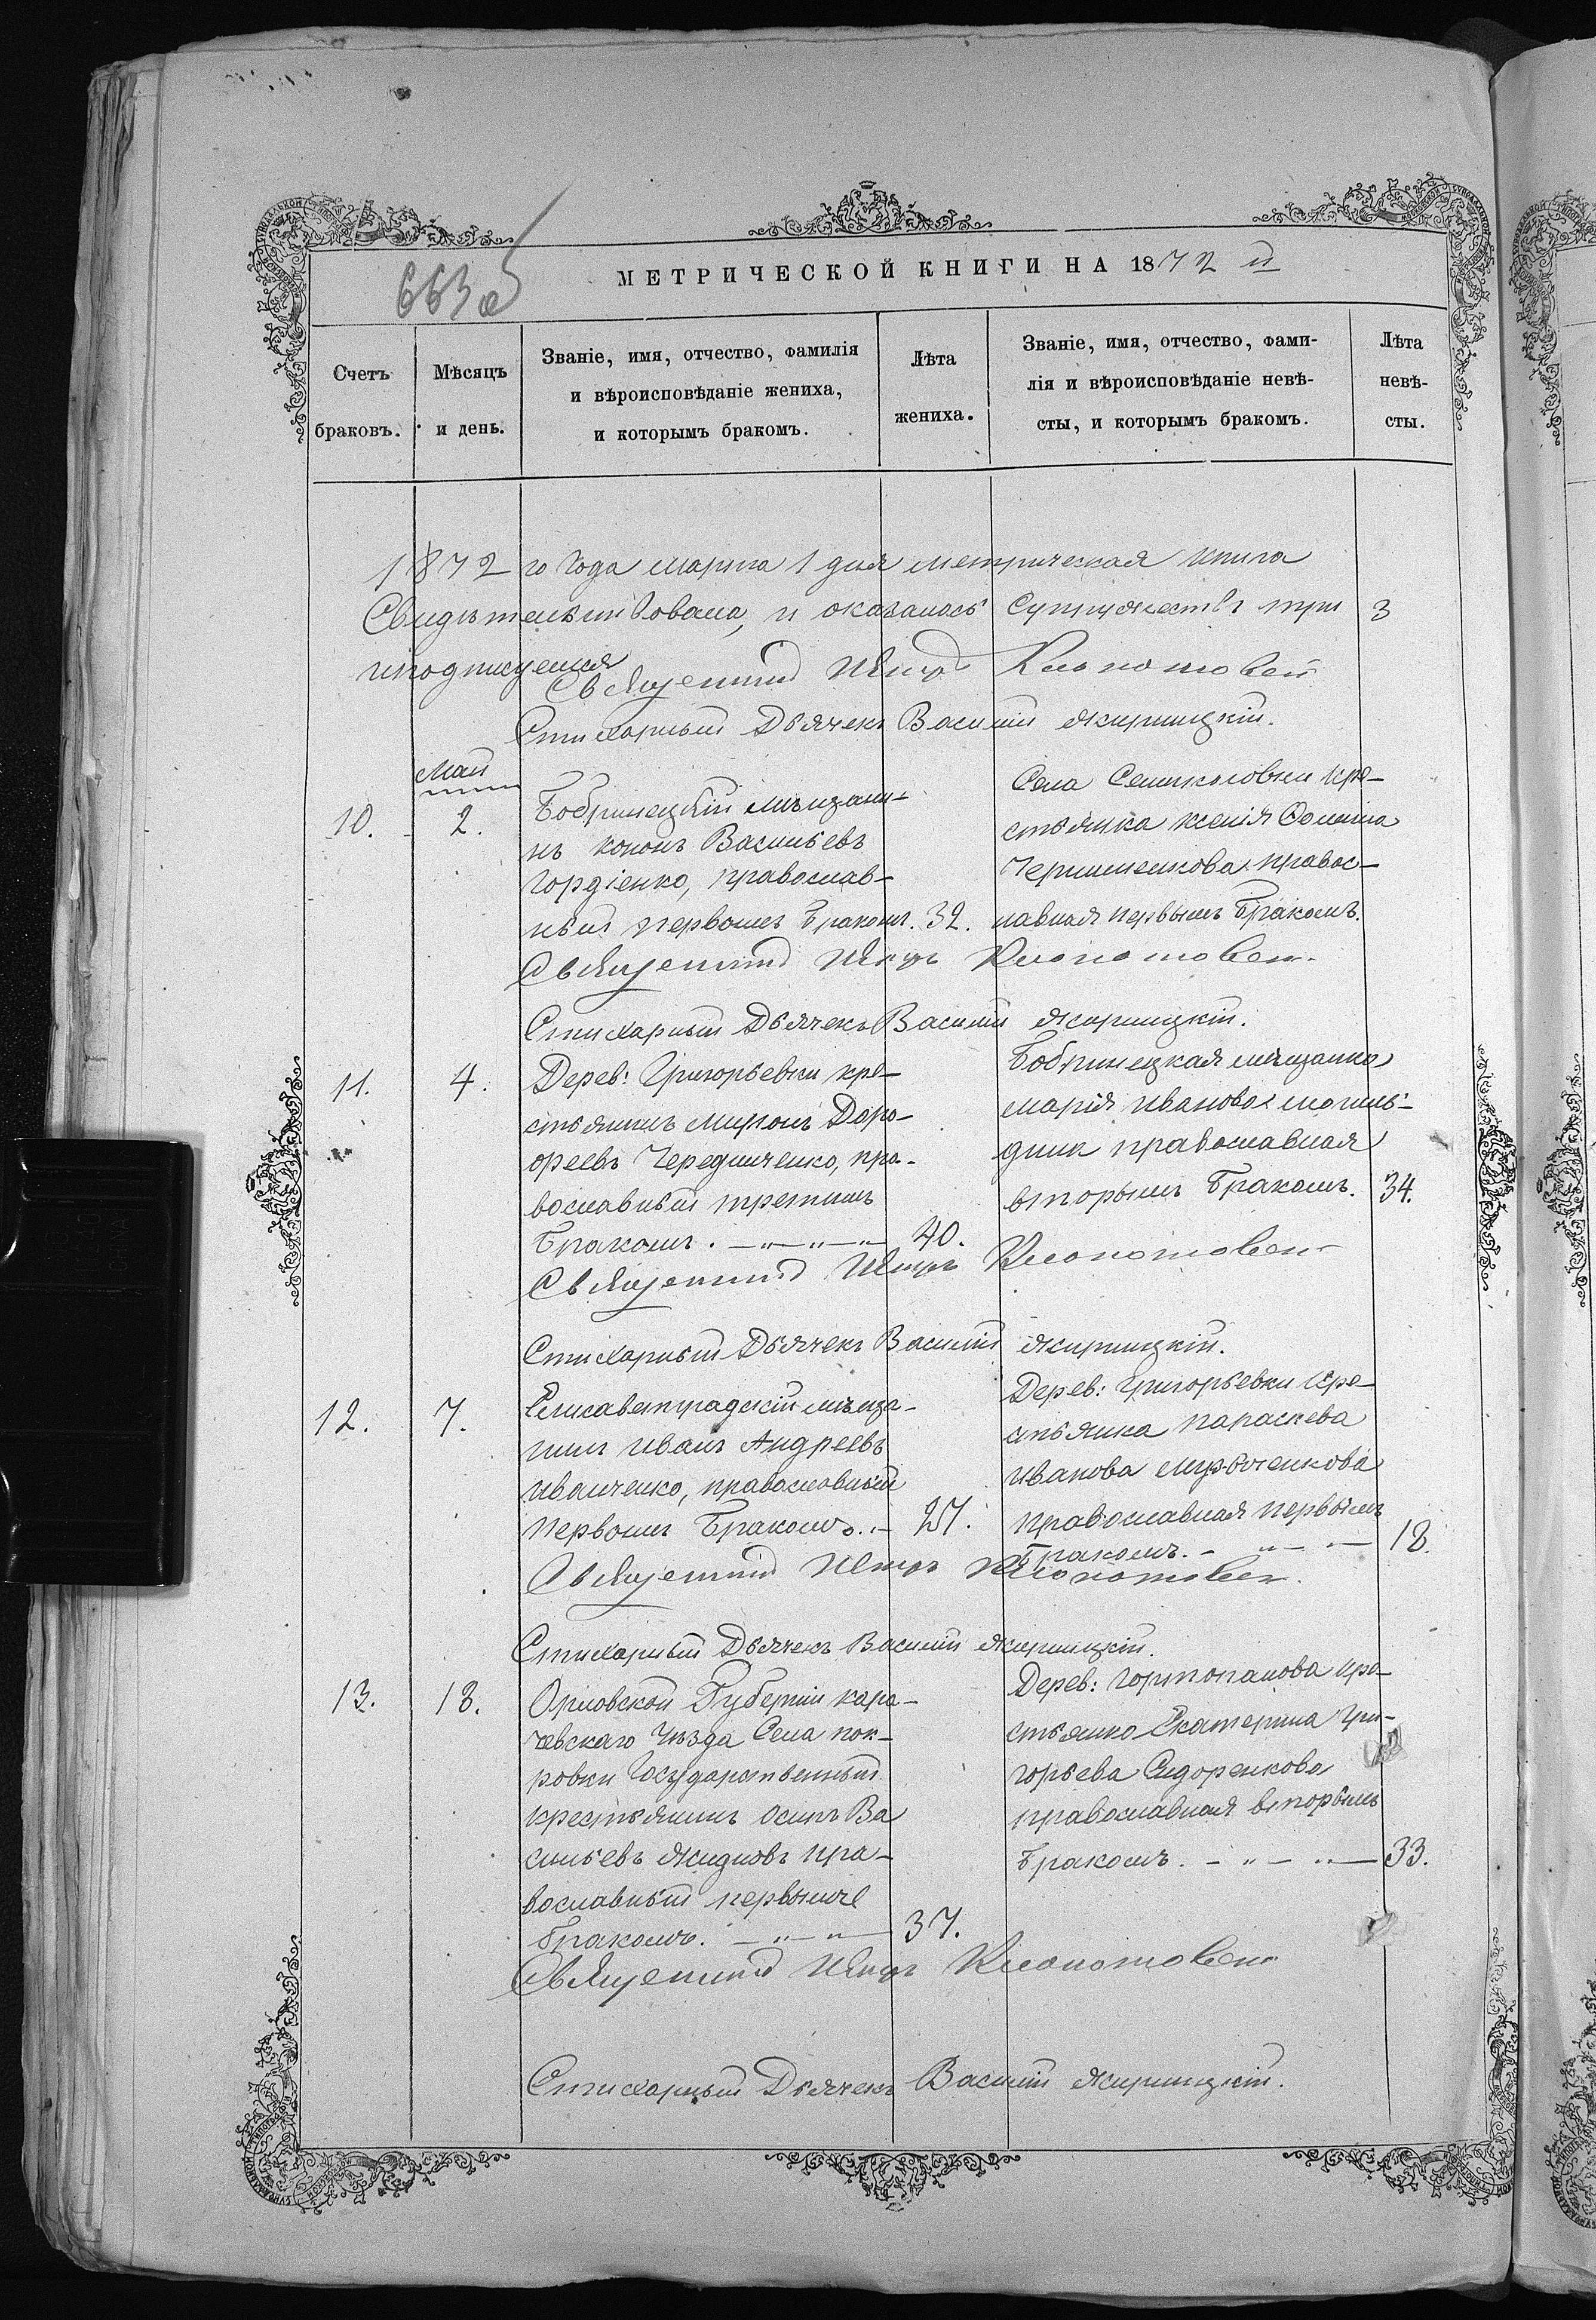 663 об
МЕТРИЧЕСКОЙ КНИГИ НА 1872 й
Счетъ браковъ.
Мѣсяцъ и день.
Званіе, имя, отчество, фамилія
и вѣроисповѣданіе жениха,
и которымъ бракомъ.
Лѣта жениха.
Званіе, имя, отчество, фами-
лія и вѣроисповѣданіе невѣ-
сты, и которымъ бракомъ.
Лѣта невѣ-
сты.
1872 го Года марта 1 дня метрическая книга
Свидѣтельствована, и оказалось Супружествъ три 3
иподписуемся
Священникъ Петръ Клопотовъ
Стихарный Дьячекъ Василій Жирицкій.
Май
10. 2.
Бобринецкій мѣщани-
нъ кононъ Васильевъ
Гордіенко, православ-
ный первымъ Бракомъ. 32.
Села Семикозовки кре-
стьянка ксенія Фомина
правос-
лавная первымъ Бракомъ.
Священникъ Петръ
Стихарный Дьячекъ Василій Жирицкій.
11. 4.
Дерев: Григорьевки кре-
стьянинъ миронъ Доро-
феевъ Чередниченко, пра-
вославный третимъ
Бракомъ. 40.
Бобринецкая мѣщанка
марія иванова
православная
вторымъ Бракомъ. 34.
Священникъ Петръ
Стихарный Дьячекъ Василій Жирицкій.
12. 7.
Елисаветградскій мѣща-
нинъ иванъ Андреевъ
иванченко, православный
первымъ Бракомъ. 27.
Дерев: Григорьевки кре-
стьянка параскева
Иванова
православная первымъ
Бракомъ. 18.
Священникъ Петръ
Стихарный Дьячекъ Василій Жирицкій.
13. 18.
Орловской Губерніи кара-
чевскаго уѣзда Села пок-
ровки Государственный
крестьянинъ осипъ Ва
сильевъ Жидковъ пра-
вославный первымъ
Бракомъ. 37.
Дерев: Гортопанова кре-
стьянка Екатерина Гри-
горьева Сидоренкова
православная вторымъ
Бракомъ. 33.
Священникъ Петръ
Стихарный Дьячекъ Василій Жирицкій.